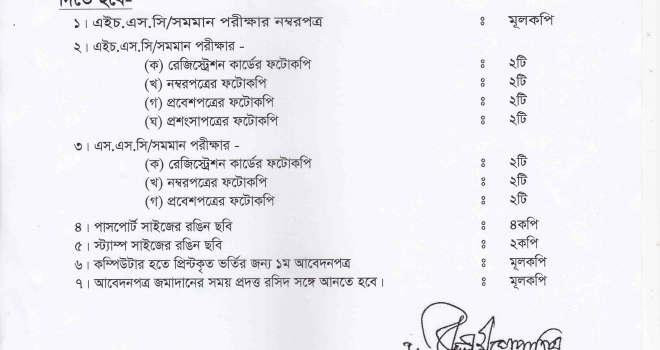 দিতে হবে-
১। এইচ.এস.সি/সমমান পরীক্ষার নম্বরপত্র ঃ মূলকপি
২। এইচ.এস.সি/সমমান পরীক্ষার -
(ক) রেজিস্ট্রেশন কার্ডের ফটোকপি ঃ ২টি
(খ) নম্বরপত্রের ফটোকপি ঃ ২টি
(গ) প্রবেশপত্রের ফটোকপি ঃ ২টি
(ঘ) প্রশংসাপত্রের ফটোকপি ঃ ২টি
৩। এস.এস.সি/সমমান পরীক্ষার -
(ক) রেজিস্ট্রেশন কার্ডের ফটোকপি ঃ ২টি
(খ) নম্বরপত্রের ফটোকপি ঃ ২টি
(গ) প্রবেশপত্রের ফটোকপি ঃ ২টি
৪। পাসপোর্ট সাইজের রঙিন ছবি ঃ ৪কপি
৫। স্ট্যাম্প সাইজের রঙিন ছবি ঃ ২কপি
৬। কম্পিউটার হতে প্রিন্টকৃত ভর্তির জন্য ১ম আবেদনপত্র ঃ মূলকপি
৭। আবেদনপত্র জমাদানের সময় প্রদত্ত রসিদ সঙ্গে আনতে হবে। ঃ মূলকপি